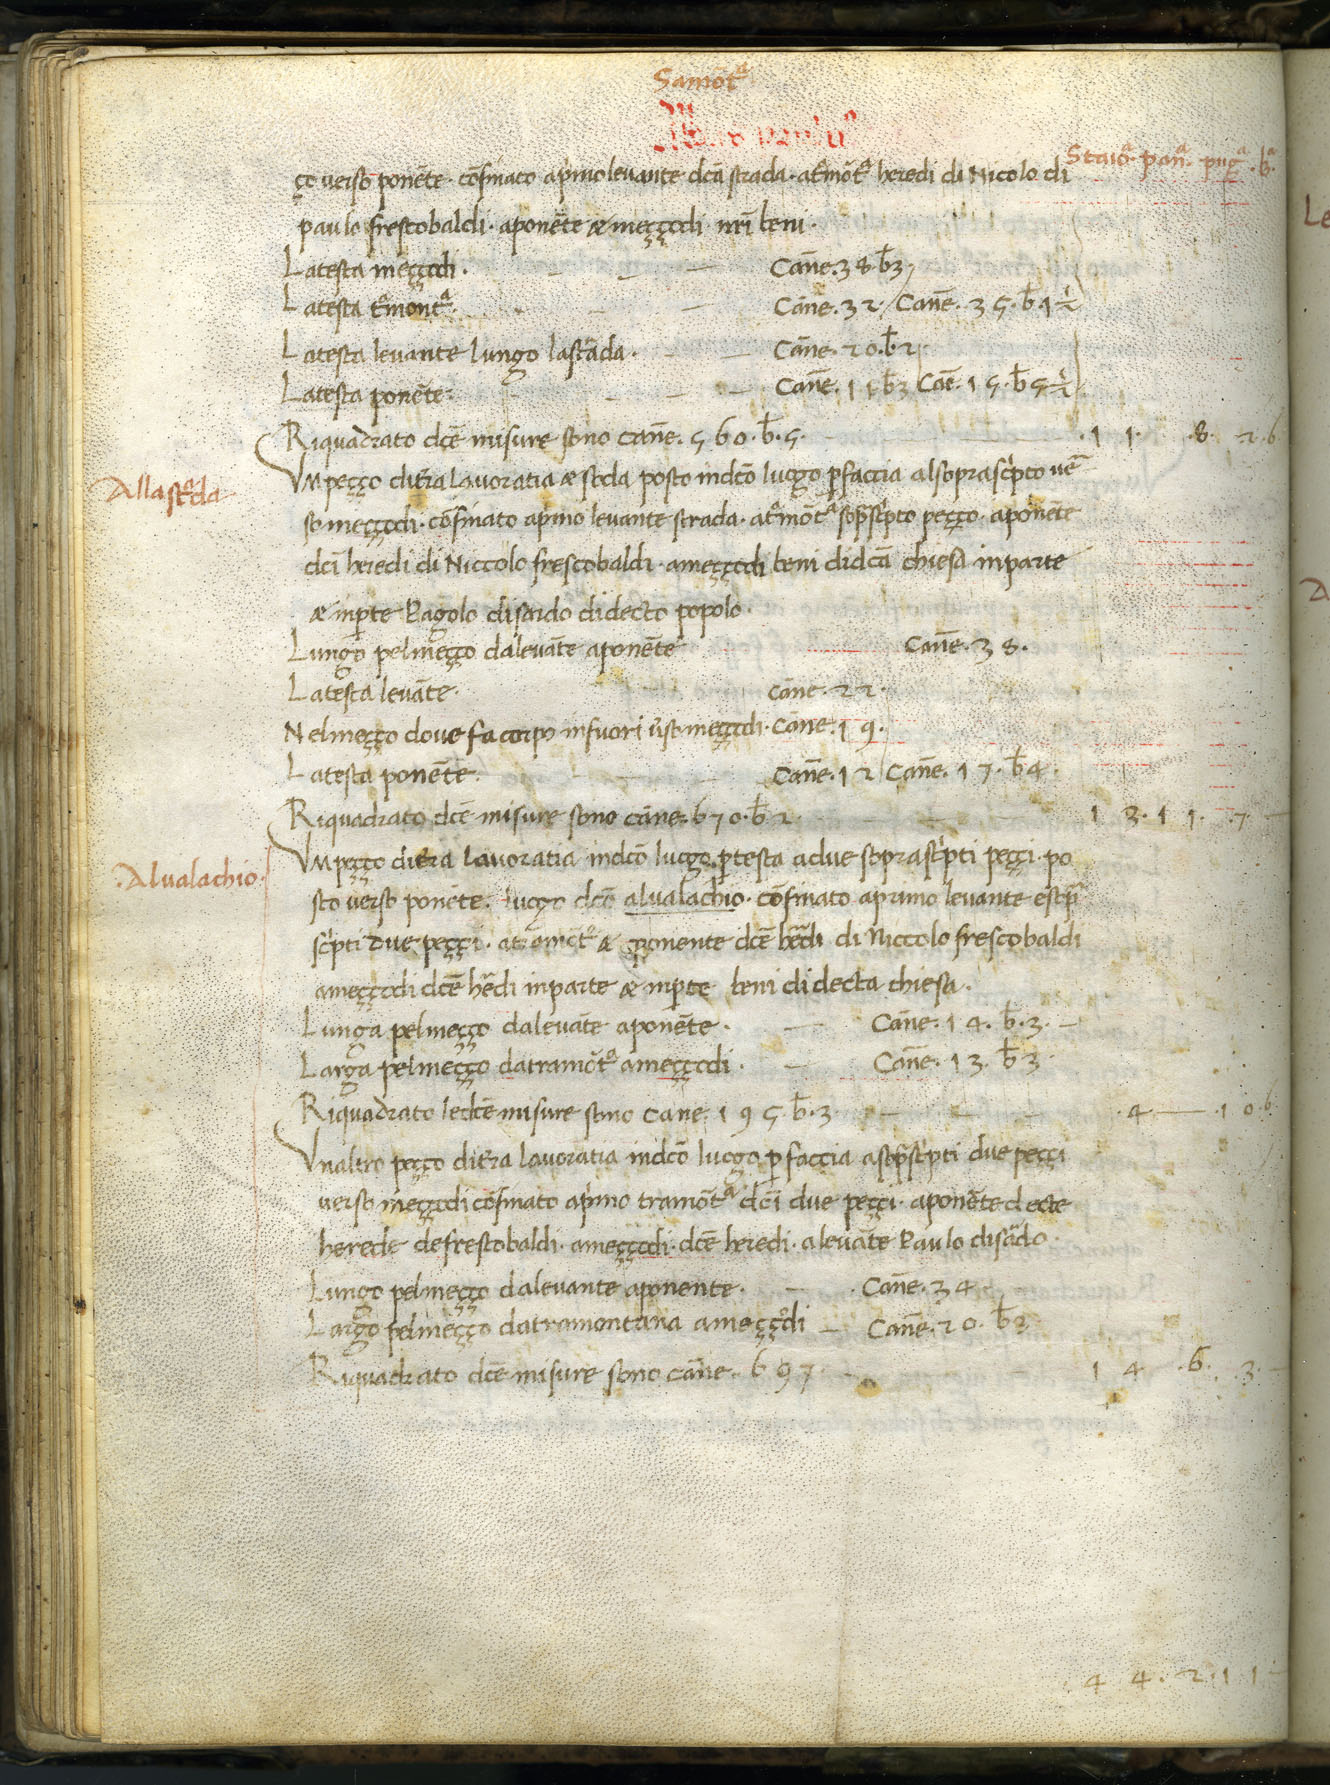 Samōtᵃ
Staioᵃ panᵃ. pugᵃ. bᵃ
ço verso ponēte. cōfinato apimo levante dcā strada. at̄mōtᵃ heredi di Nicolo di
paulo frescobaldi. aponēte & meççodi nr̄i beni.
Latesta meççodi. Canne. 38. b̄ 3
Latesta t̄montᵃ. Canne. 32 / Canne. 35. b̄ 1 ½
Latesta levante lungo lastrada. Canne. 20. b̄ 2
Latesta ponēte. Canne. 11 b̄ 3 Cañe. 15. b̄ 5 ½
Riquadrato dcē misure sono canne. 560. b̄. 5. 11. 8. 2. 6
Allastrada
Un peçço dit̄ra lavoratia & soda posto indcō luogo p̄ faccia alsoprascripto ver
so meççodi. cōfinato apimo levante strada. at̄mōtᵃ sop̄scripto peçço. aponēte
dcī heredi di Niccolo frescobaldi. ameççodi beni didcā chiesa inparte
& inp̄te Pagolo disardo didecto popolo.
Lungo pelmeçço dalevāte aponēte Canne. 38.
Latesta levāte. Canne. 22.
Nelmeçço dove fa corpo infuori v̄so meççodi. Canne. 19.
Latesta ponēte. Canne. 12 Canne. 17. b̄ 4.
Riquadrato dcē misure sono cāne. 670. b̄ 2 13. 11. 7.
.Alvalachio.
Un peçço dit̄ra lavoratia indcō luogo p̄ testa adue soprascripti peççi. po
sto verso ponēte. luogo dcō alvalachio. cōfinato aprimo levante esop̄
scripti due peççi. atramōtᵃ & aponente dcē hēdi di Niccolo frescobaldi
ameççodi dcē hēdi inparte & inp̄te beni di decta chiesa.
Lunga pelmeçço dalevāte aponēte. Canne. 14. b̄. 3.
Larga pelmeçço datramōtᵃ ameççodi. Canne. 13. b̄ 3
Riquadrato ledcē misure sono cane. 195. b̄. 3 4. 10. 6
Unaltro peçço dit̄ra lavoratia indcō luogo p̄ faccia asop̄scripti due peççi
verso meççodi cōfinato apimo tramōtᵃ dcī due peççi. aponēte decte
herede defrescobaldi. ameççodi. dcē heredi. alevāte Paulo disardo.
Lungo pelmeçço dalevante aponente. Canne. 34
Largo pelmeçço datramontana ameççodi Canne. 20. b̄ 3
Riquadrato dcē misure sono cāne. 697. 14. 6. 3.
44. 2. 11